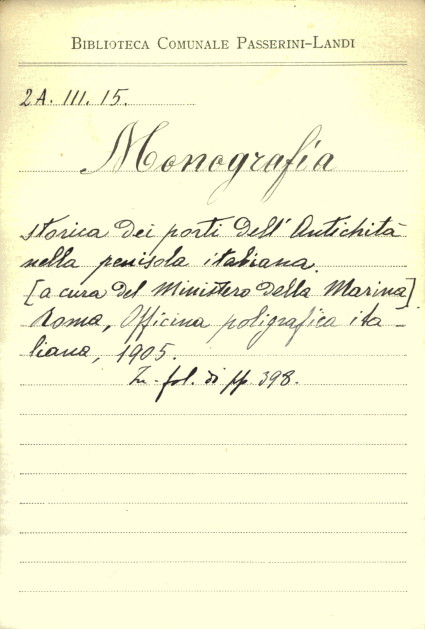 BIBLIOTECA COMUNALE PASSERINI-LANDI
2A. III. 15.
Monografia
storica dei porti dell'Antichità
nella penisola italiana.
[a cura del Ministero della Marina]
Roma, Officina poligrafica ita-
liana, 1905.
In-fol. di pp. 398.